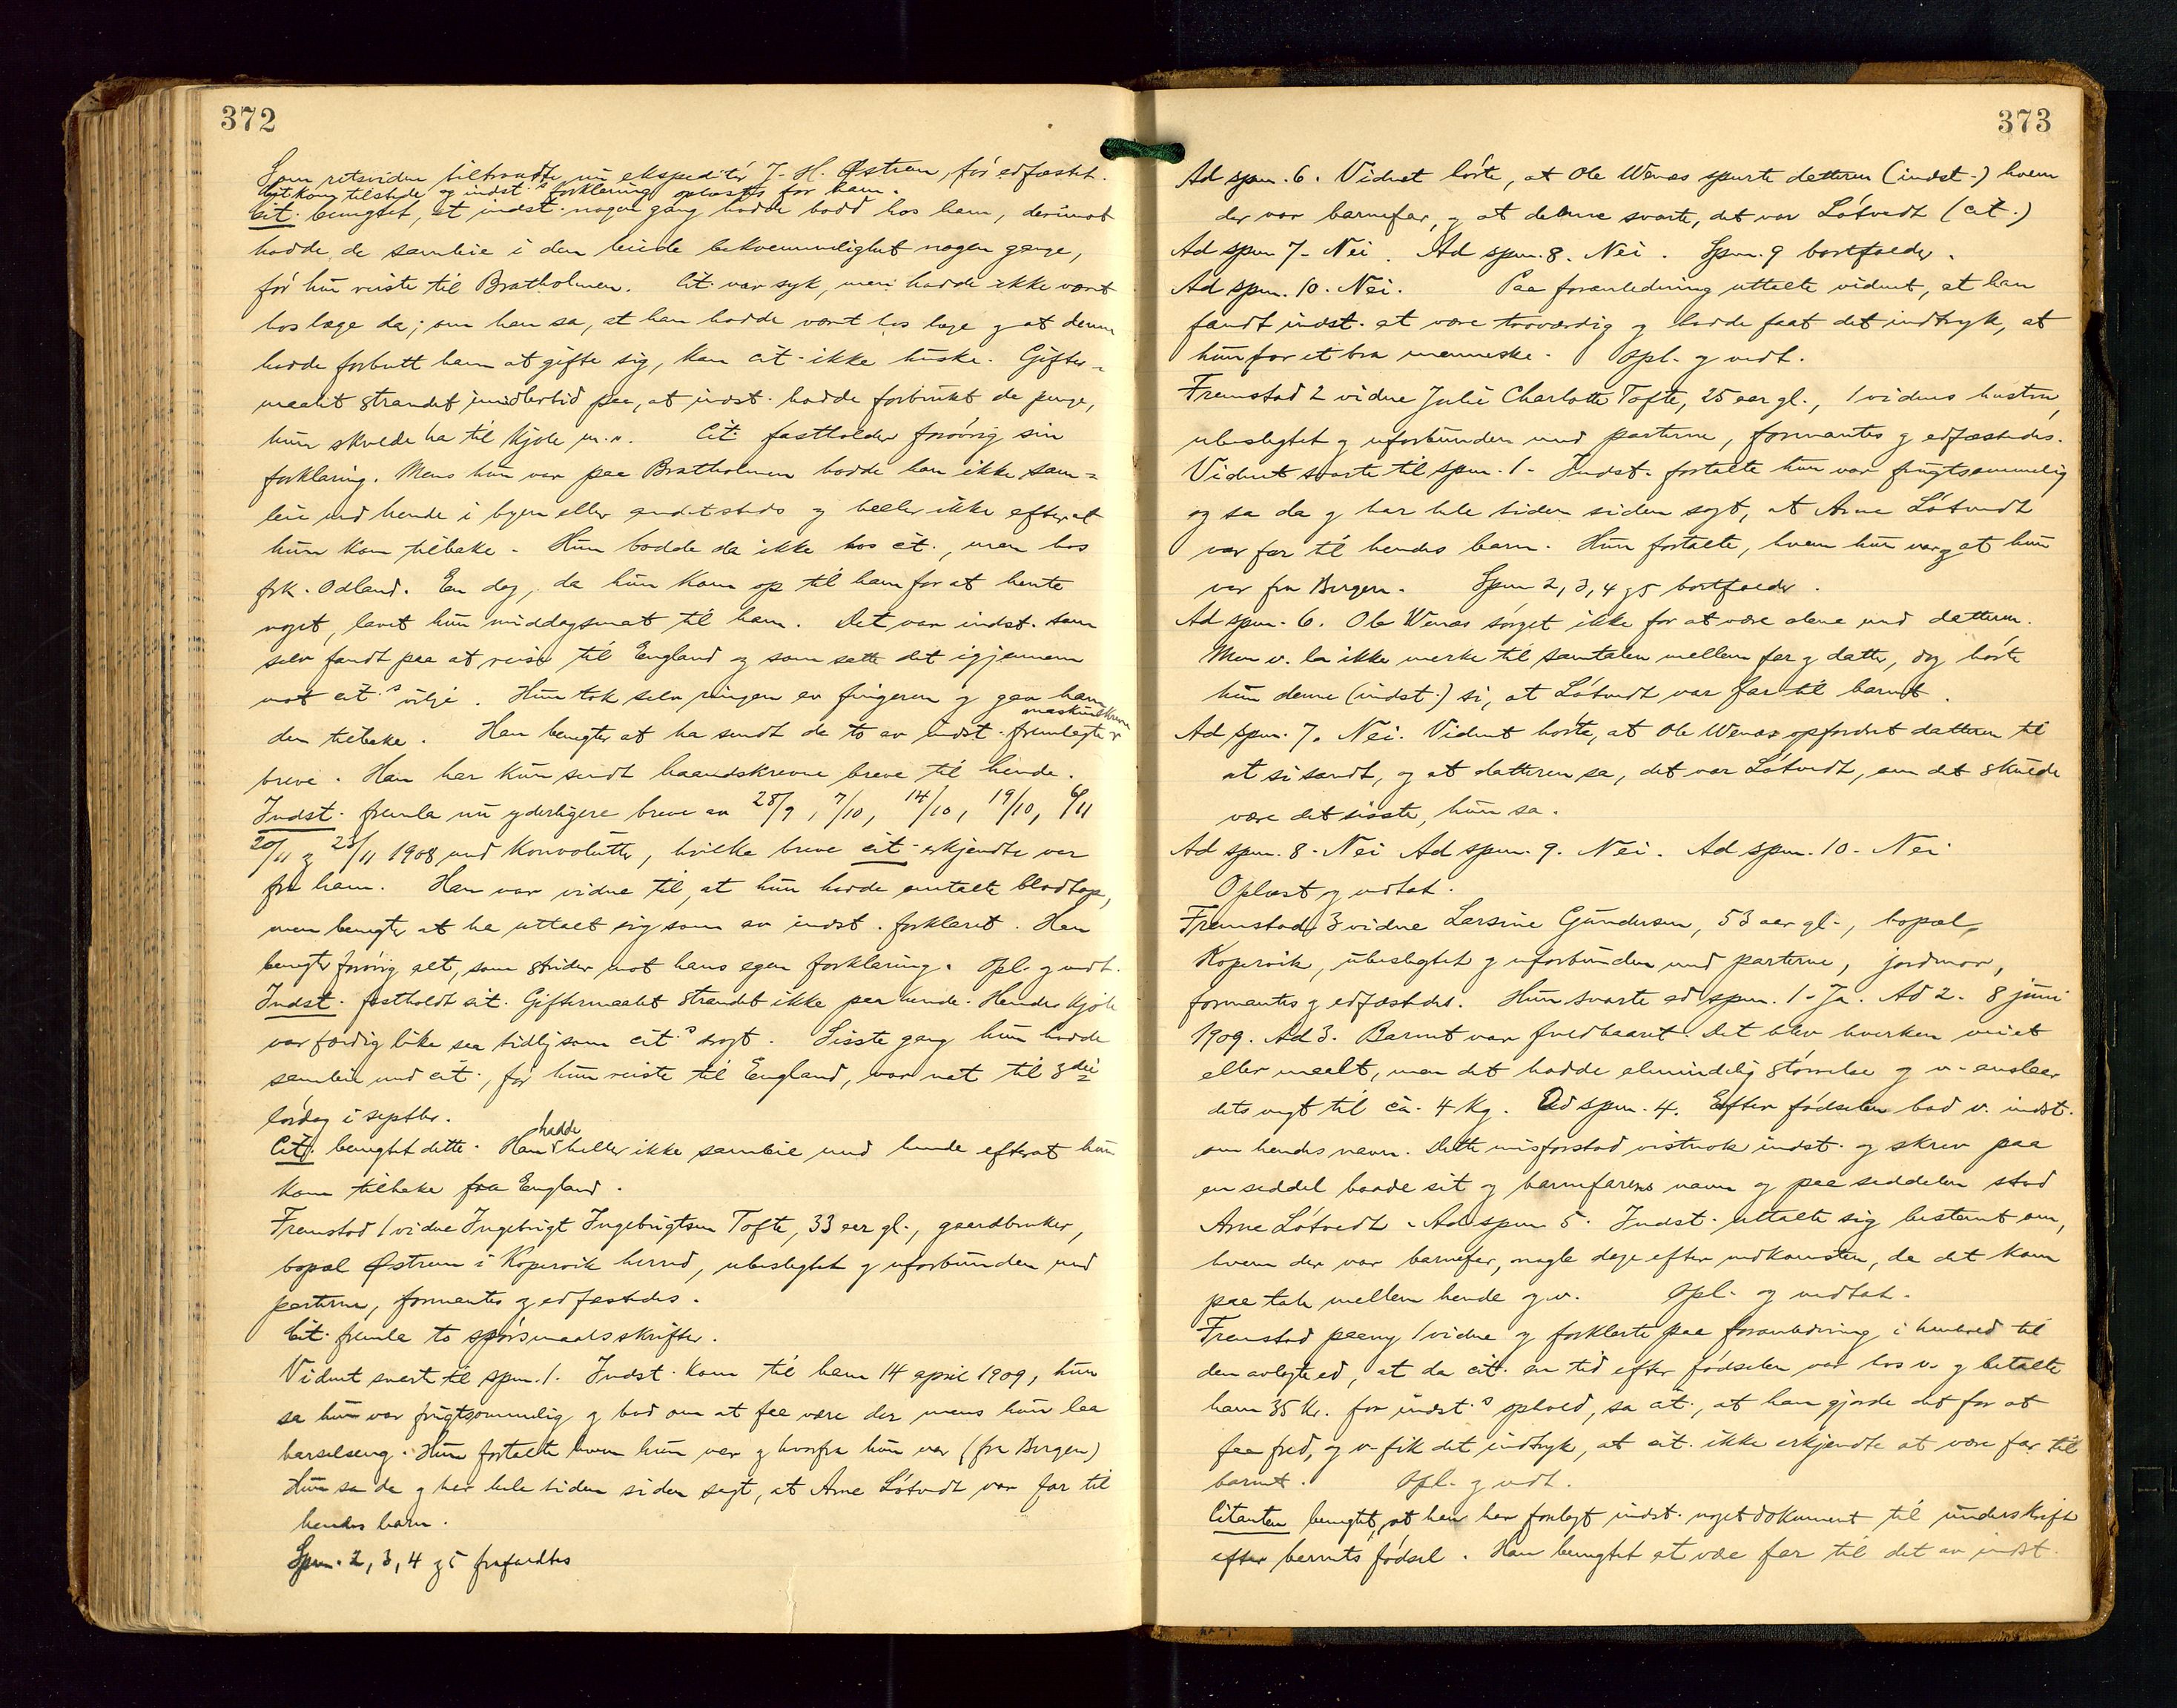 372
Som retsvidne tiltraadte nu ekspeditör J. H. Østrem, för edfæstet.
Cit. kom tilstede og indst.s forklaring oplæstes for ham.
Cit. benegtet, at indst. nogen gang hadde bodd hos ham, derimot
hadde de samleie i den leiede bekvemmelighet nogen gange,
för hun reiste til Bratholmen. Cit. var syk, men hadde ikke været
hos læge da; om han sa, at han hadde været hos læge og at denne
hadde forbutt ham at gifte sig, kan cit. ikke huske. Gifter-
maalet strandet imidlertid paa, at indst. hadde forbrukt de penge,
hun skulde ha til kjole m.v. Cit. fastholder forövrig sin
forklaring. Mens hun var paa Bratholmen hadde han ikke sam=
leie med hende i byen eller andetsteds og heller ikke efterat
hun kom tilbake. Hun bodde da ikke hos cit., men hos
frk. Odland. En dag, da hun kom op til ham for at hente
noget, lavet hun middagsmat til ham. Det var indst. som
selv fandt paa at reise til England og som satte det igjennem
mot cit.s vilje. Hun tok selv ringen av fingeren og gav ham
den tilbake. Han benegter at ha sendt de to av indst. fremlagte maskinskrevne
breve. Han har kun sendt haandskrevne breve til hende.
Indst. fremla nu yderligere breve av 28/9, 7/10, 14/10, 19/10, 6/11
20/11 og 23/11 1908 med konvolutter, hvilke breve cit. erkjendte var
fra ham. Han var vidne til, at hun hadde omtalt blodtap,
men benegter at ha uttalt sig som av indst. forklaret. Han
benegter forövrig alt, som strider mot hans egen forklaring. Opl. og vedt.
Indst. fastholdt sit. Giftermaalet strandet ikke paa hende. Hendes kjole
var færdig like saa tidlig som cit.s dragt. Sisste gang hun hadde
samleie med cit., för hun reiste til England, var nat til 3die
lördag i septbr.
Cit. benegtet dette. Han hadde heller ikke samleie med hende efterat hun
kom tilbake fra England.
Fremstod 1 vidne Ingebrigt Ingebrigtsen Tofte, 33 aar gl., gaardbruker,
bopæl Østrem i Kopervik herred, ubeslegtet og uforbunden med
parterne, formantes og edfæstedes.
Cit. fremla to spörsmaalsskrifter.
Vidnet svarte til spm. 1. Indst. kom til ham 14 april 1909, hun
sa hun var frugtsommelig og bad om at faa være der mens hun laa
barselseng. Hun fortalte hvem hun var og hvorfra hun var (fra Bergen)
Hun sa da og har hele tiden siden sagt, at Arne Lötvedt var far til
hendes barn.
Spm. 2, 3, 4 og 5 frafaldtes
373
Ad spm. 6. Vidnet hörte, at Ole Wenas spurte datteren (indst.) hvem
der var barnefar, og at denne svarte, det var Lötvedt (cit.)
Ad spm 7. Nei. Ad spm. 8. Nei. Spm. 9 bortfalder.
Ad spm. 10. Nei. Paa foranledning uttalte vidnet, at han
fandt indst. at være troværdig og hadde faat det indtryk, at
hun var et bra menneske. Opl. og vedt.
Fremstod 2 vidne Julie Charlotte Tofte, 25 aar gl., 1 vidnes hustru,
ubeslegtet og uforbunden med parterne, formantes og edfæstedes.
Vidnet svarte til spm. 1. Indst. fortalte hun var frugtsommelig
og sa da og har hele tiden siden sagt, at Arne Lötvedt
var far til hendes barn. Hun fortalte, hvem hun var og at hun
var fra Bergen. Spm 2, 3, 4 og 5 bortfalder.
Ad spm. 6. Ole Wenas sörget ikke for at være alene med datteren.
Men v. la ikke merke til samtalen mellem far og datter, dog hörte
hun denne (indst.) si, at Lötvedt var far til barnet.
Ad spm. 7. Nei. Vidnet hörte, at Ole Wenas opfordret datteren til
at si sandt, og at datteren sa, det var Lötvedt, om det skulde
være det sisste, hun sa.
Ad spm. 8. Nei Ad spm. 9. Nei. Ad spm. 10. Nei
Oplæst og vedtat.
Fremstod 3 vidne Larsine Gundersen, 53 aar gl., bopæl
Kopervik, ubeslegtet og uforbunden med parterne, jordmor,
formantes og edfæstedes. Hun svarte ad spm. 1. Ja. Ad 2. 8 juni
1909. Ad 3. Barnet var fuldbaaret. Det blev hverken veiet
eller maalt, men det hadde almindelig störrelse og v. anslaar
dets vegt til ca. 4 kg. Ad spm. 4. Efter födselen bad v. indst.
om hendes navn. Dette misforstod vistnok indst. og skrev paa
en seddel baade sit og barnefarens navn og paa seddelen stod
Arne Lötvedt. Ad spm 5. Indst. uttalte sig bestemt om,
hvem der var barnefar, nogle dage efter nedkomsten, da det kom
paa tale mellem hende og v. Opl. og vedtat.
Fremstod paany 1 vidne og forklarte paa foranledning, i henhold til
den avlagte ed, at da cit. en tid efter födselen var hos v. og betalte
ham 35 kr. for indst.s ophold, sa cit., at han gjorde det for at
faa fred, og v. fik det indtryk, at cit. ikke erkjendte at være far til
barnet. Opl. og vedt.
Citanten benegtet, at han har forelagt indst. noget dokument til underskrift
efter barnets födsel. Han benegtet at være far til det av indst.